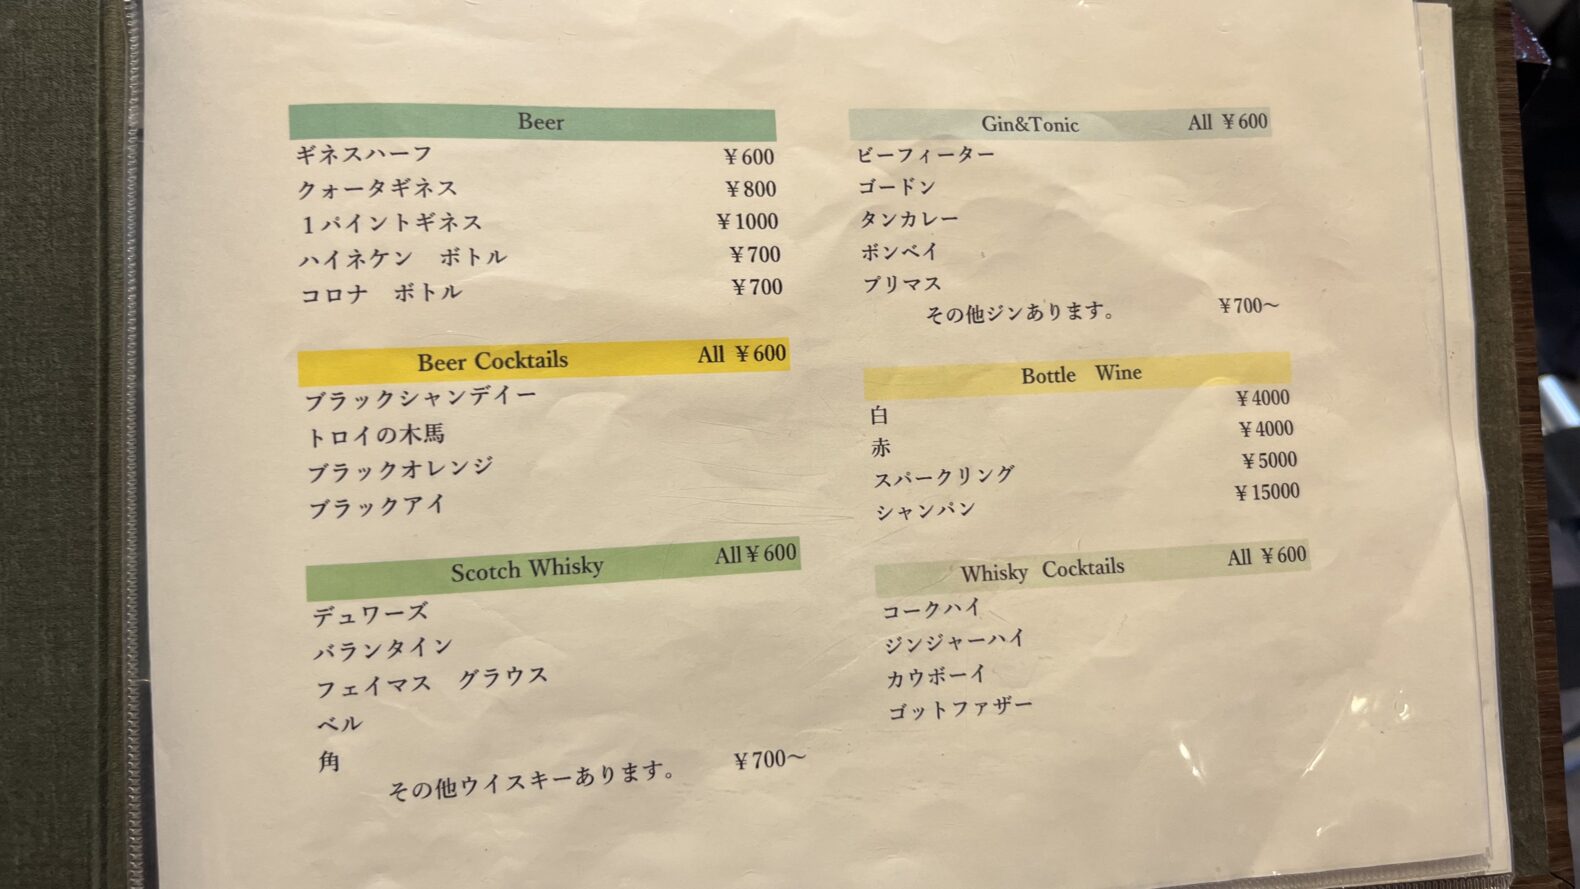 Beer
ギネスハーフ ¥600
クォータギネス ¥800
1パイントギネス ¥1000
ハイネケン ボトル ¥700
コロナ ボトル ¥700
Beer Cocktails All ¥600
ブラックシャンデイー
トロイの木馬
ブラックオレンジ
ブラックアイ
Scotch Whisky All¥600
デュワーズ
バランタイン
フェイマス グラウス
ベル
角
その他ウイスキーあります。 ¥700～
Gin&Tonic All ¥600
ビーフィーター
ゴードン
タンカレー
ボンベイ
プリマス
その他ジンあります。 ¥700～
Bottle Wine
白 ¥4000
赤 ¥4000
スパークリング ¥5000
シャンパン ¥15000
Whisky Cocktails All ¥600
コークハイ
ジンジャーハイ
カウボーイ
ゴットファザー